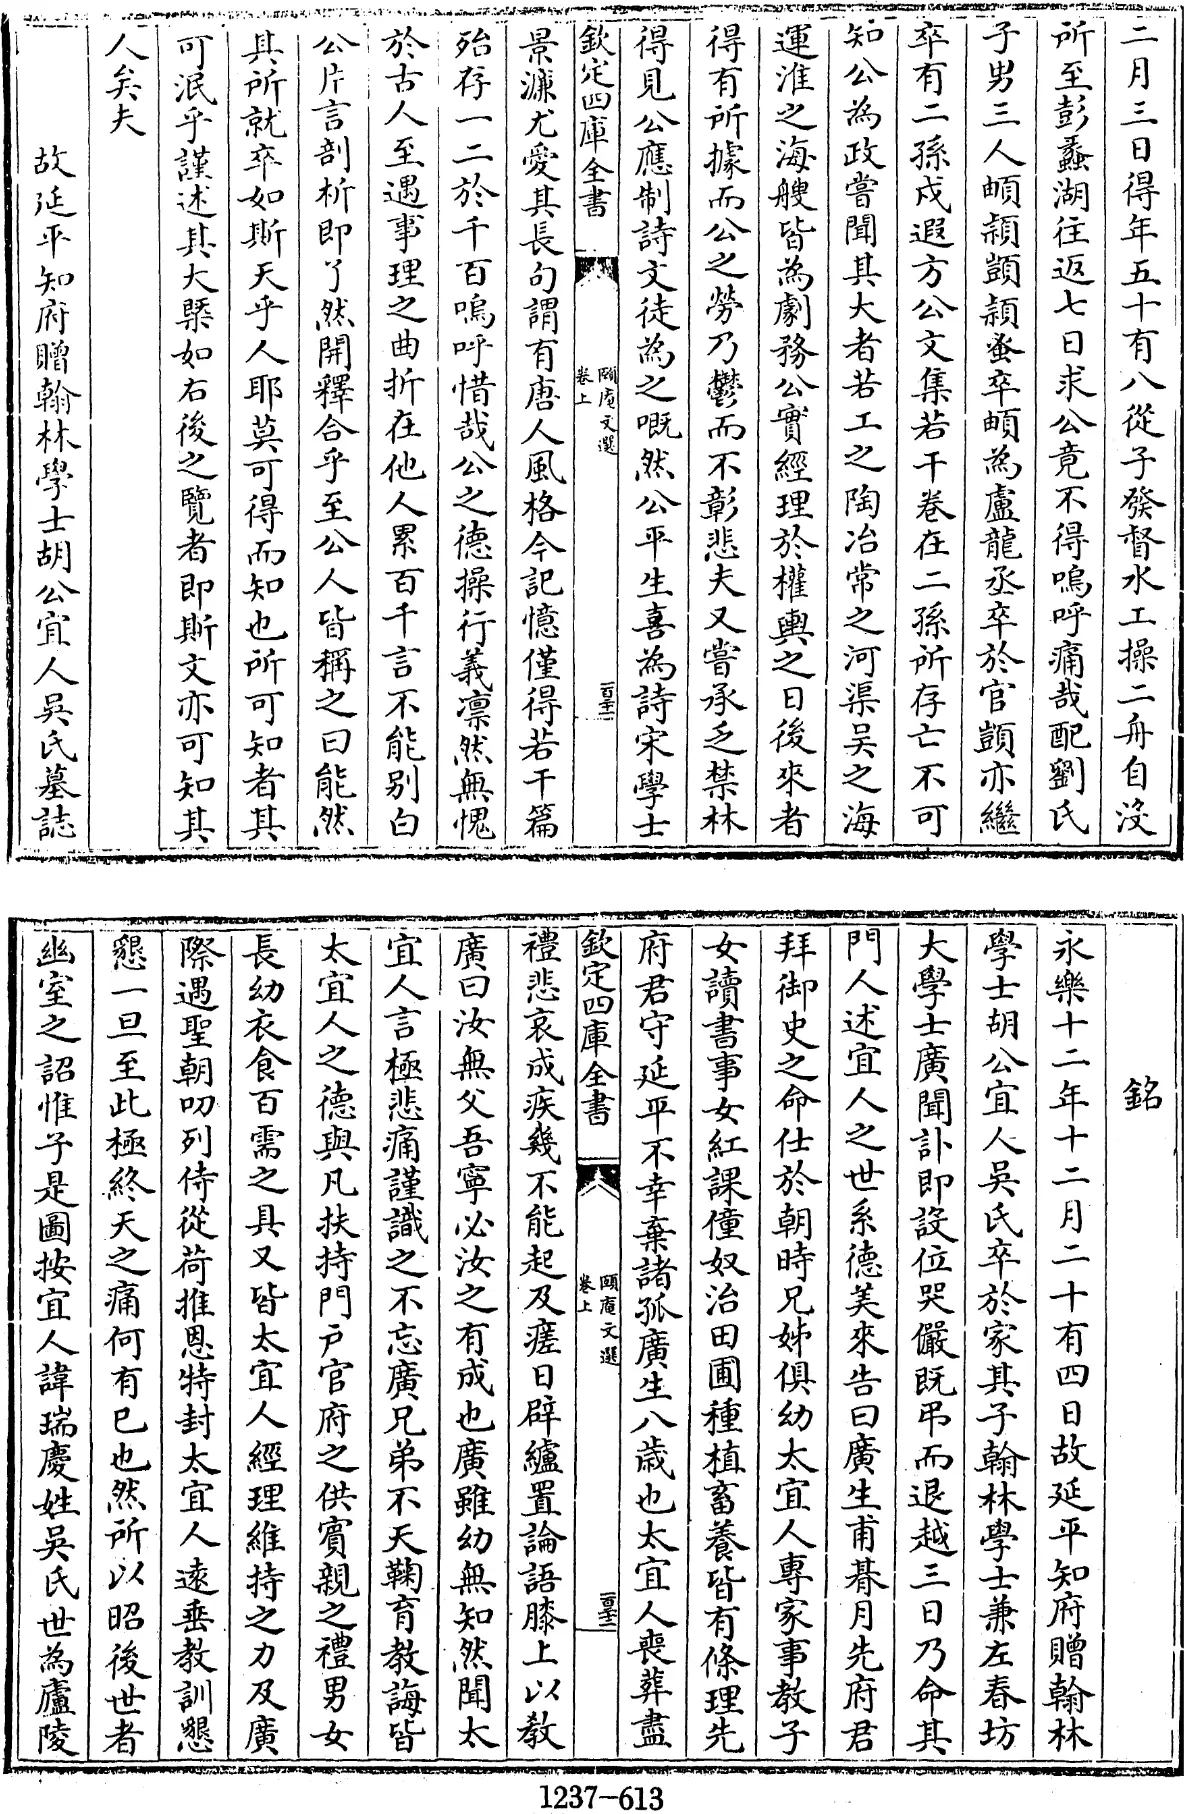 二月三日得年五十有八從子發督水工操二舟自沒
所至彭蠡湖往返七日求公竟不得嗚呼痛哉配劉氏
子男三人頔頴顗頴蚤卒頔為盧龍丞卒於官顗亦繼
卒有二孫戍遐方公文集若干卷在二孫所存亡不可
知公為政嘗聞其大者若工之陶冶常之河渠吳之海
運淮之海艘皆為劇務公實經理於權輿之日後來者
得有所據而公之勞乃鬱而不彰悲夫又嘗承乏禁林
得見公應制詩文徒為之嘅然公平生喜為詩宋學士
欽定四庫全書
頤庵文選
卷上
百三十一
景濂尤愛其長句謂有唐人風格今記憶僅得若干篇
殆存一二於千百嗚呼惜哉公之德操行義凛然無愧
於古人至遇事理之曲折在他人累百千言不能別白
公片言剖析即了然開釋合乎至公人皆稱之曰能然
其所就卒如斯天乎人耶莫可得而知也所可知者其
可泯乎謹述其大槩如右後之覽者即斯文亦可知其
人矣夫
故延平知府贈翰林學士胡公宜人吳氏墓誌
銘
永樂十二年十二月二十有四日故延平知府贈翰林
學士胡公宜人吳氏卒於家其子翰林學士兼左春坊
大學士廣聞訃即設位哭儼既弔而退越三日乃命其
門人述宜人之世系德美來告曰廣生甫朞月先府君
拜御史之命仕於朝時兄姊俱幼太宜人專家事教子
女讀書事女紅課僮奴治田圃種植畜養皆有條理先
府君守延平不幸棄諸孤廣生八歲也太宜人喪葬盡
欽定四庫全書
頤庵文選
卷上
禮悲哀成疾幾不能起及瘥日辟纑置論語膝上以敎
廣曰汝無父吾寧必汝之有成也廣雖幼無知然聞太
宜人言極悲痛謹識之不忘廣兄弟不天鞠育教誨皆
太宜人之德與凡扶持門户官府之供賓親之禮男女
長幼衣食百需之具又皆太宜人經理維持之力及廣
際遇聖朝叨列侍從荷推恩特封太宜人遠垂教訓懇
懇一旦至此極終天之痛何有已也然所以昭後世者
幽室之詔惟子是圖按宜人諱瑞慶姓吳氏世為廬陵
1237-613